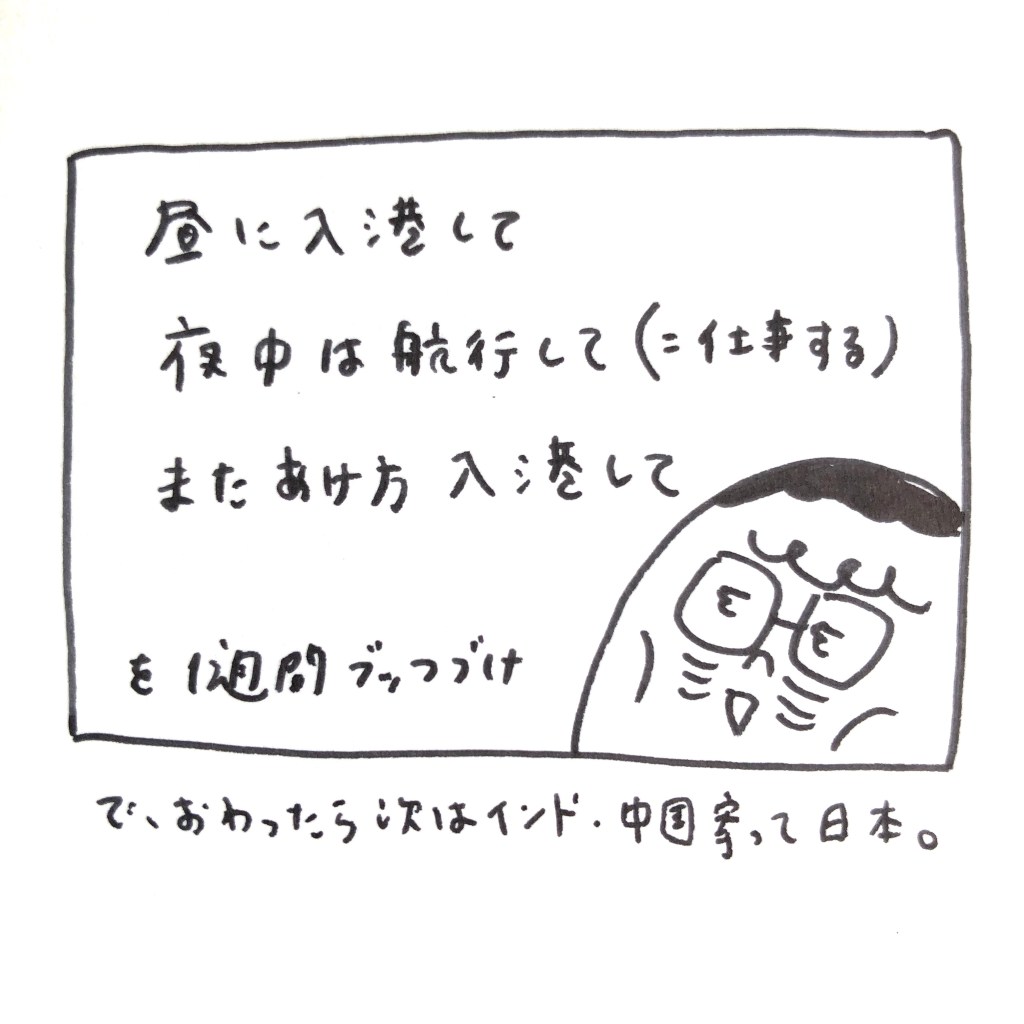 昼に入港して
夜中は航行して(=仕事する)
またあけ方入港して
を1週間ブッつづけ
で、おわったら次はインド.中国寄って日本。